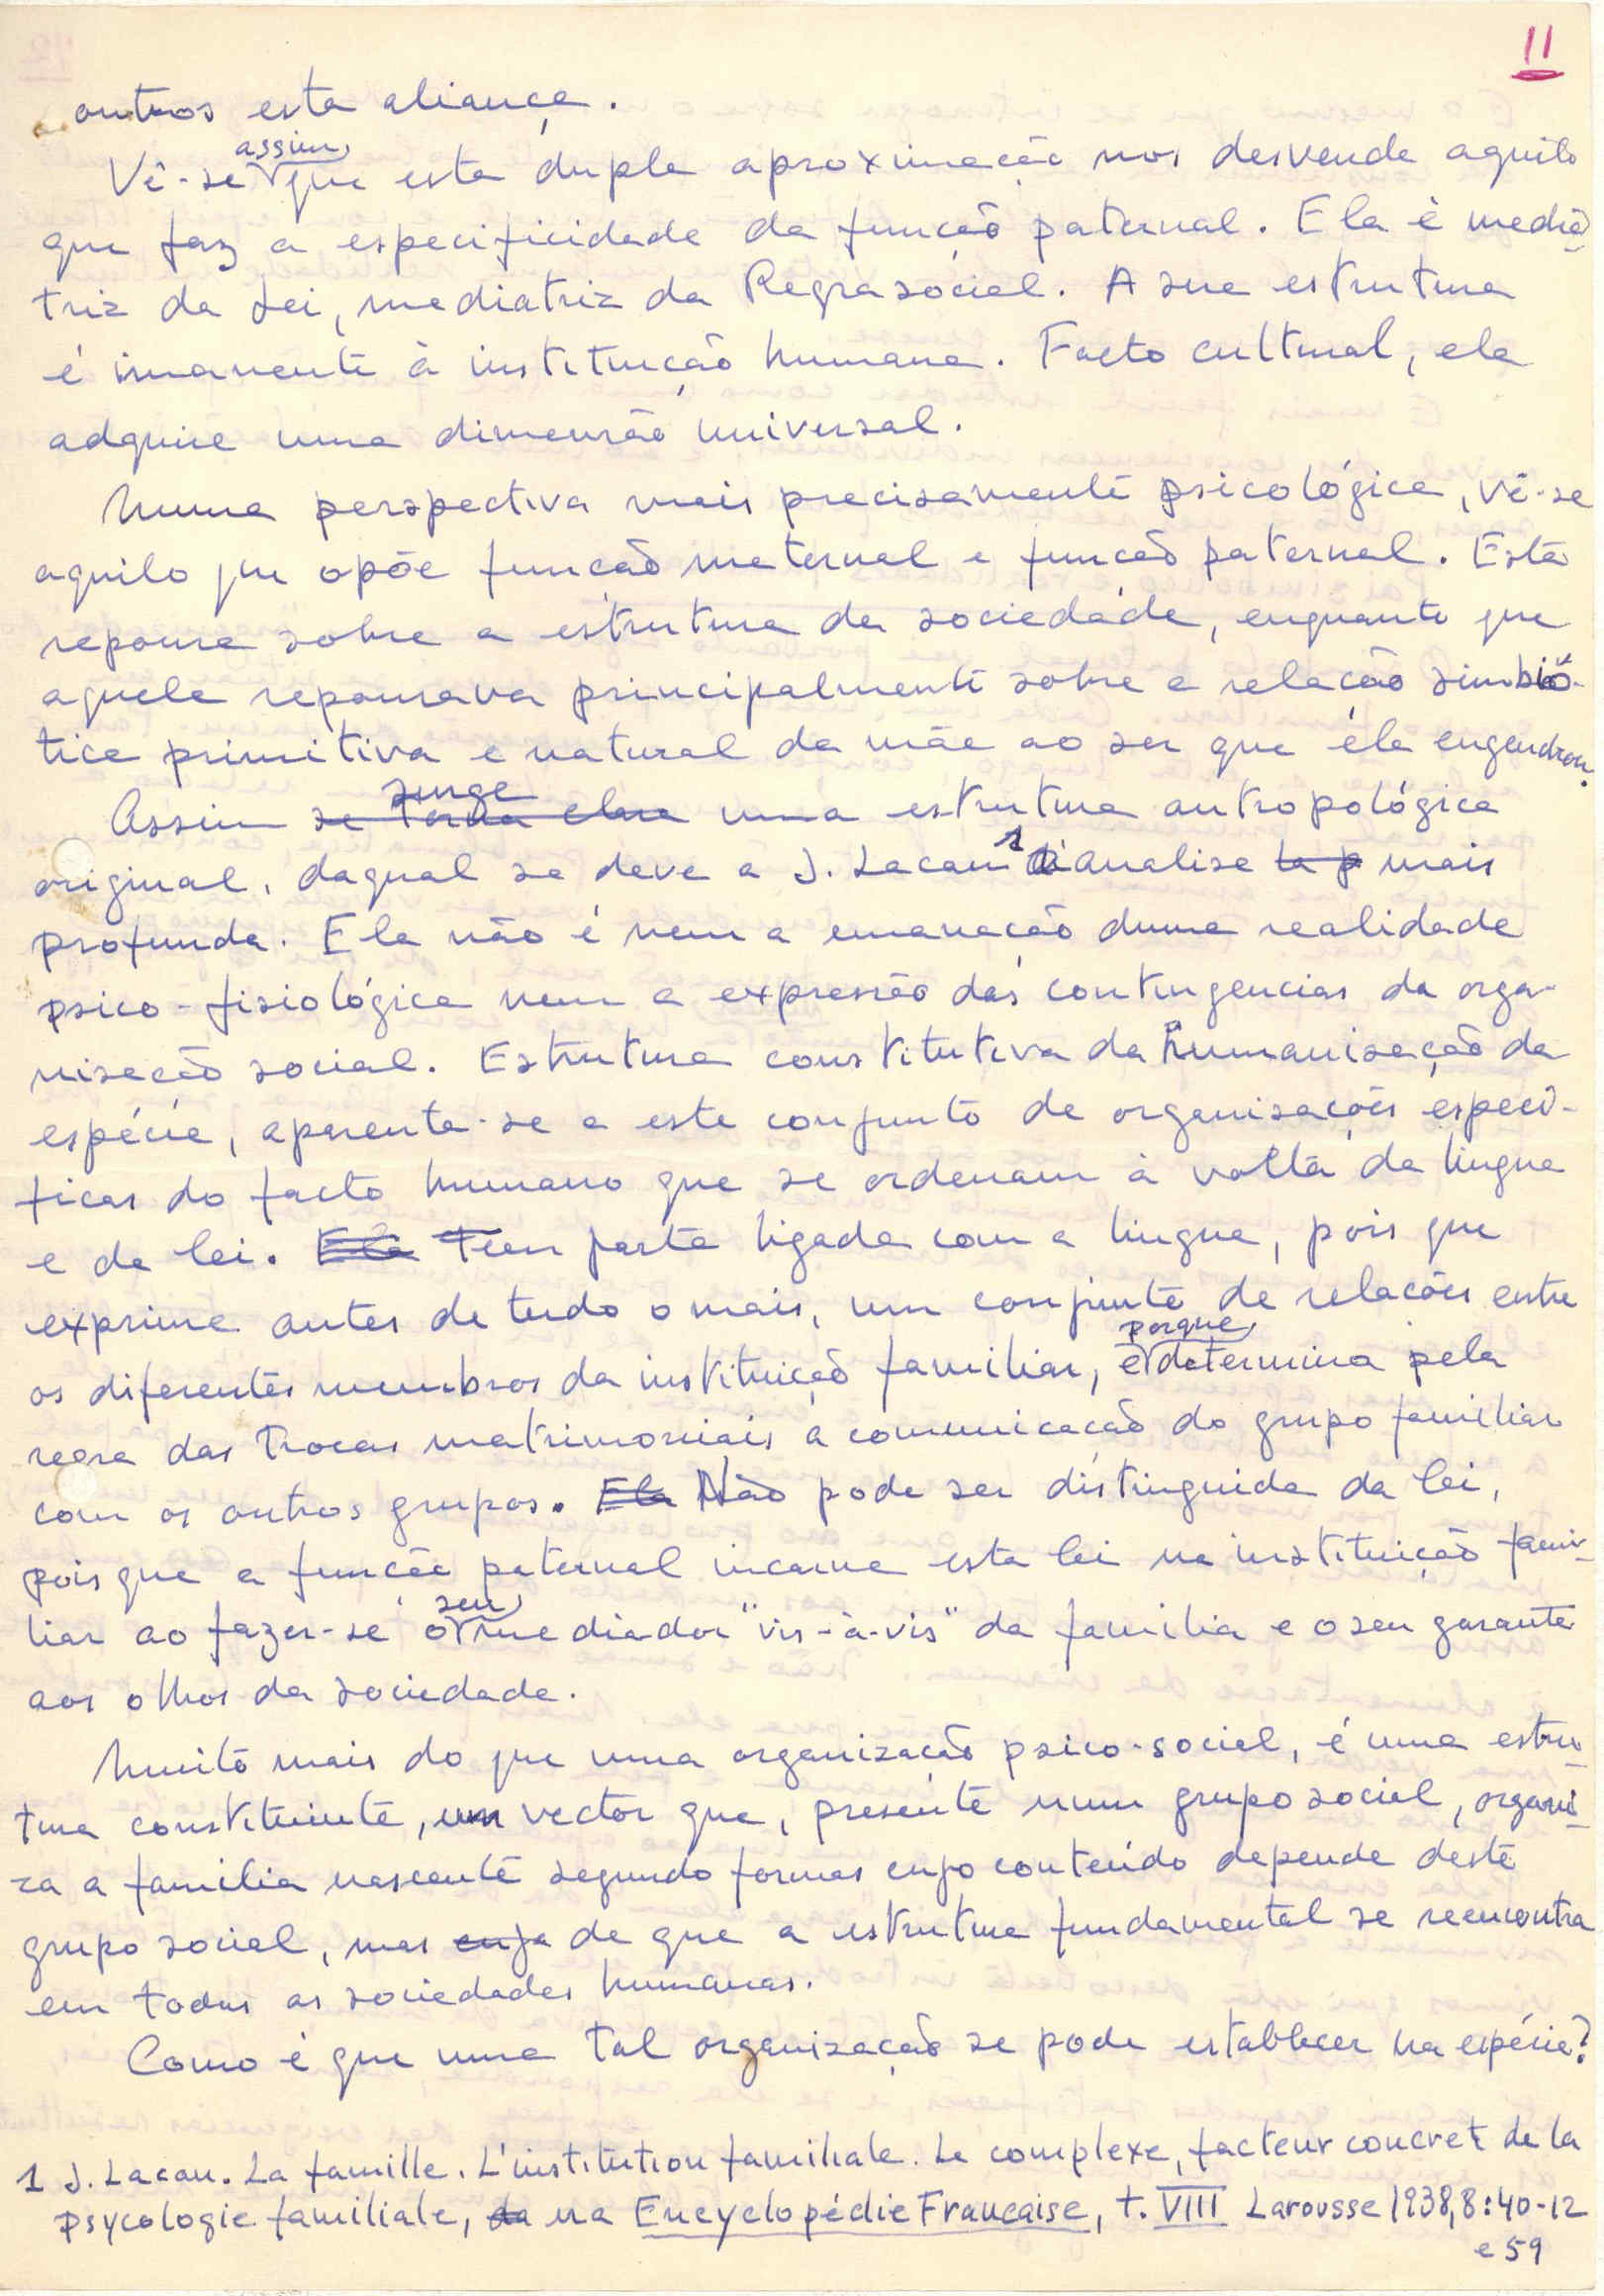 11
outros esta aliança.
Vê-se assim que esta dupla aproximação nos desvenda aquilo
que faz a especificidade da função paternal. Ela é media-
triz da Lei, mediatriz da Regra social. A sua estrutura
é imanente à instituição humana. Facto cultural, ela
adquire uma dimensão universal.
Numa perspectiva mais precisamente psicológica, vê-se
aquilo que opõe função maternal e função paternal. Esta
repousa sobre a estrutura da sociedade, enquanto que
aquela repousava principalmente sobre a relação simbió-
tica primitiva e natural da mãe ao ser que ela engendrou.
Assim se torna clara surge uma estrutura antropológica
original, da qual se deve a J. Lacan 1 a analise la p mais
profunda. Ela não é nem a emanação duma realidade
psico-fisiológica nem a expressão das contingencias da orga-
nisação social. Estrutura constitutiva da humanisação da
espécie, aparenta-se a este conjunto de organisações especi-
ficas do facto humano que se ordenam à volta da lingua
e da lei. Ela Tem parte ligada com a lingua, pois que
exprime antes de tudo o mais, um conjunto de relações entre
os diferentes membros da instituição familiar, e porque determina pela
regra das trocas matrimoniais a comunicação do grupo familiar
com os outros grupos. Ela Não pode ser distinguida da lei,
pois que a função paternal incarna esta lei na instituição fami-
liar ao fazer-se o seu mediador "vis-à-vis" da familia e o seu garante
aos olhos da sociedade.
Muito mais do que uma organização psico-social, é uma estru-
tura constituinte, um vector que, presente num grupo social, organi-
za a familia nascente segundo formas cujo conteúdo depende deste
grupo social, mas cuja de que a estrutura fundamental se reencontra
em todas as sociedades humanas.
Como é que uma tal organização se pode establecer na espécie?
1 J. Lacan. La famille. L'institution familiale. Le complexe, facteur concret de la
psycologie familiale, da na Encyclopédie Francaise, t. VIII Larousse 1938, 8:40-12
e 59